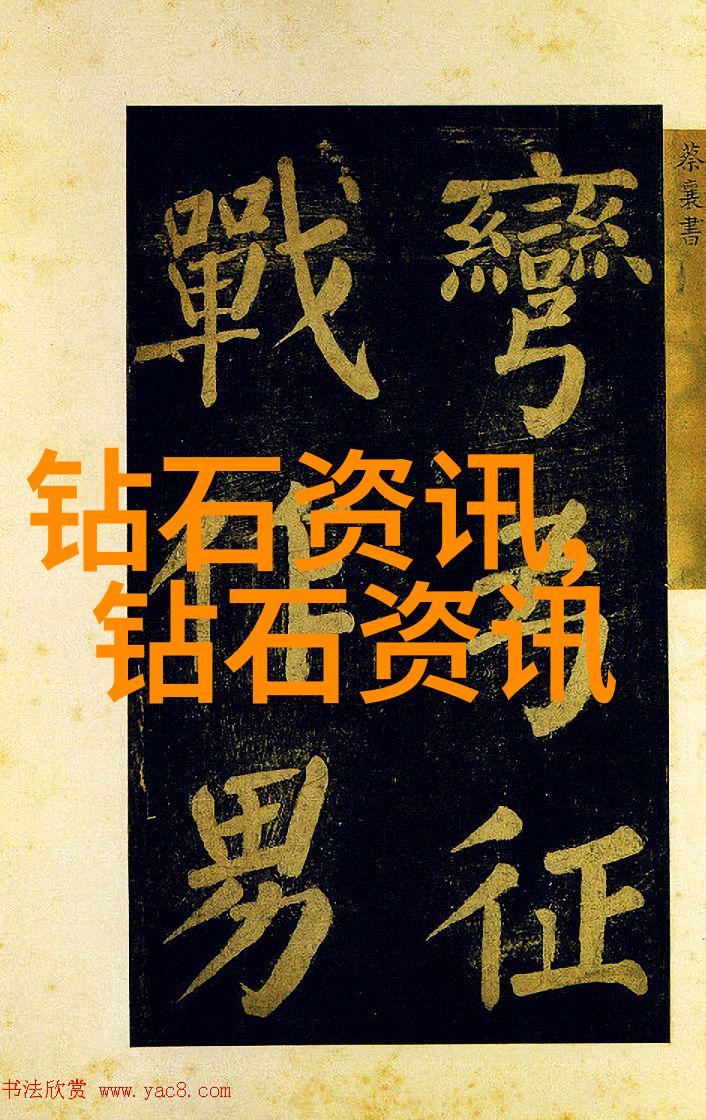 蔡襄書
彎弓征
戰作男
钻石资讯,
钻石资讯
书法欣赏 www.yac8.com